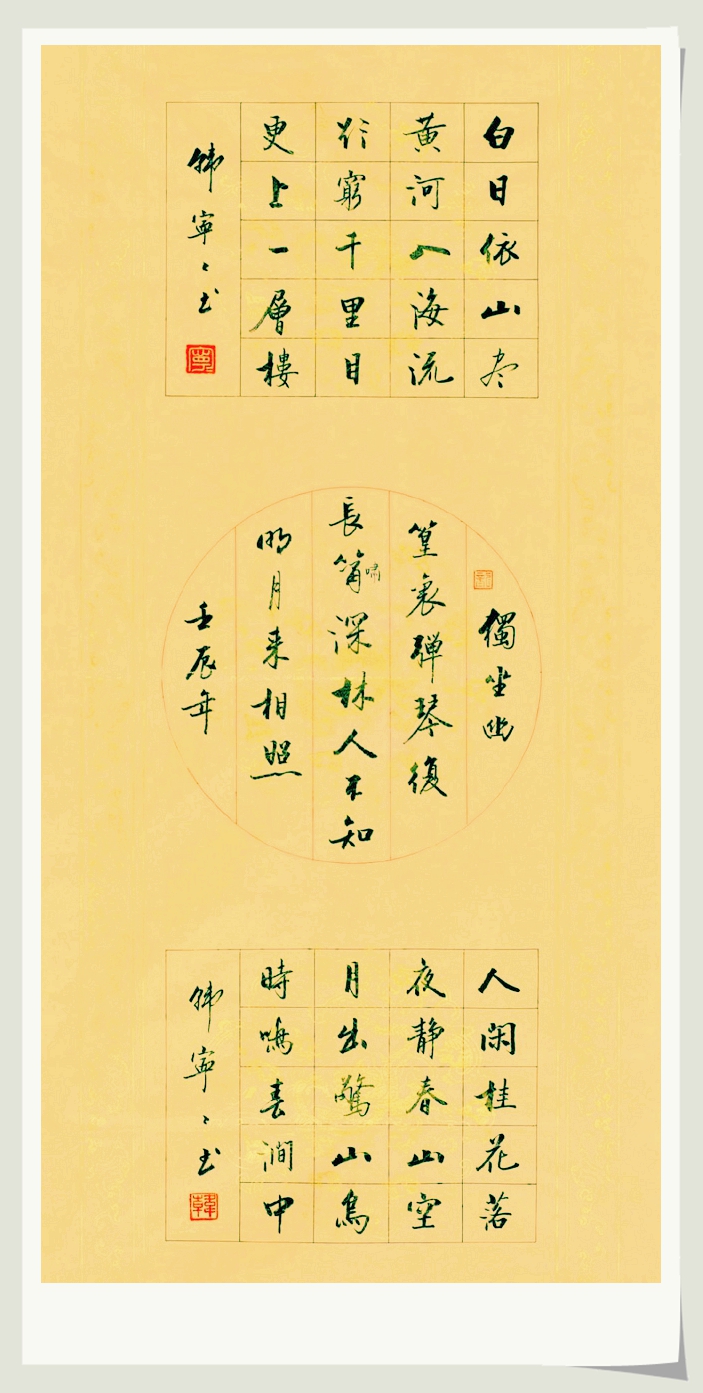 白日依山尽
黄河入海流
欲窮千里目
更上一層樓
韓寧〻书
獨坐幽
篁裏彈琴復
長簫嘯深林人不知
明月来相照
壬辰年
人閑桂花落
夜静春山空
月出驚山鳥
時鳴春澗中
韓寧〻书
韓